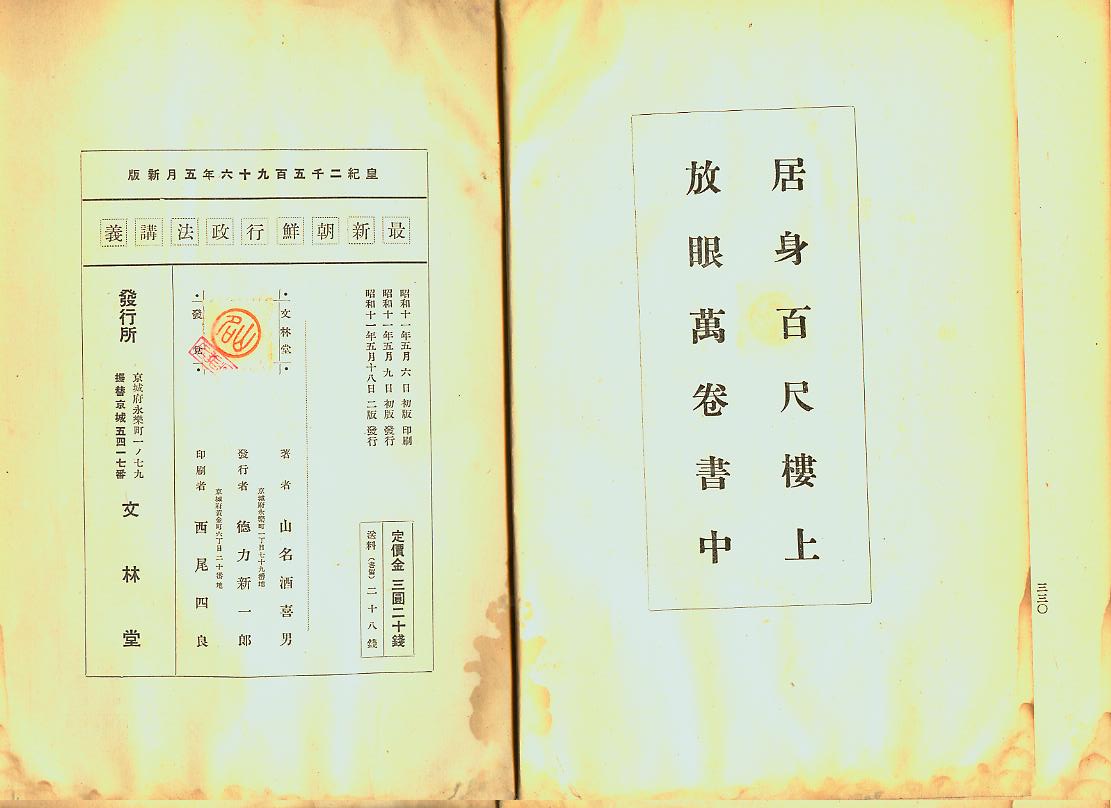 三三〇
居身百尺樓上
放眼萬卷書中
皇紀二千五百九十六年五月新版
最新朝鮮行政法講義
昭和十一年五月六日初版印刷
昭和十一年五月九日初版發行
昭和十一年五月十八日二版發行
定價金三圓二十錢
送料（書留）二十八錢
文林堂
發
著者 山名酒喜男
京城府永樂町一丁目七十九番地
發行者 德力新一郎
京城府黃金町六丁目二十番地
印刷者 西尾四良
發行所
京城府永樂町一ノ七九
振替京城五四一七番
文林堂